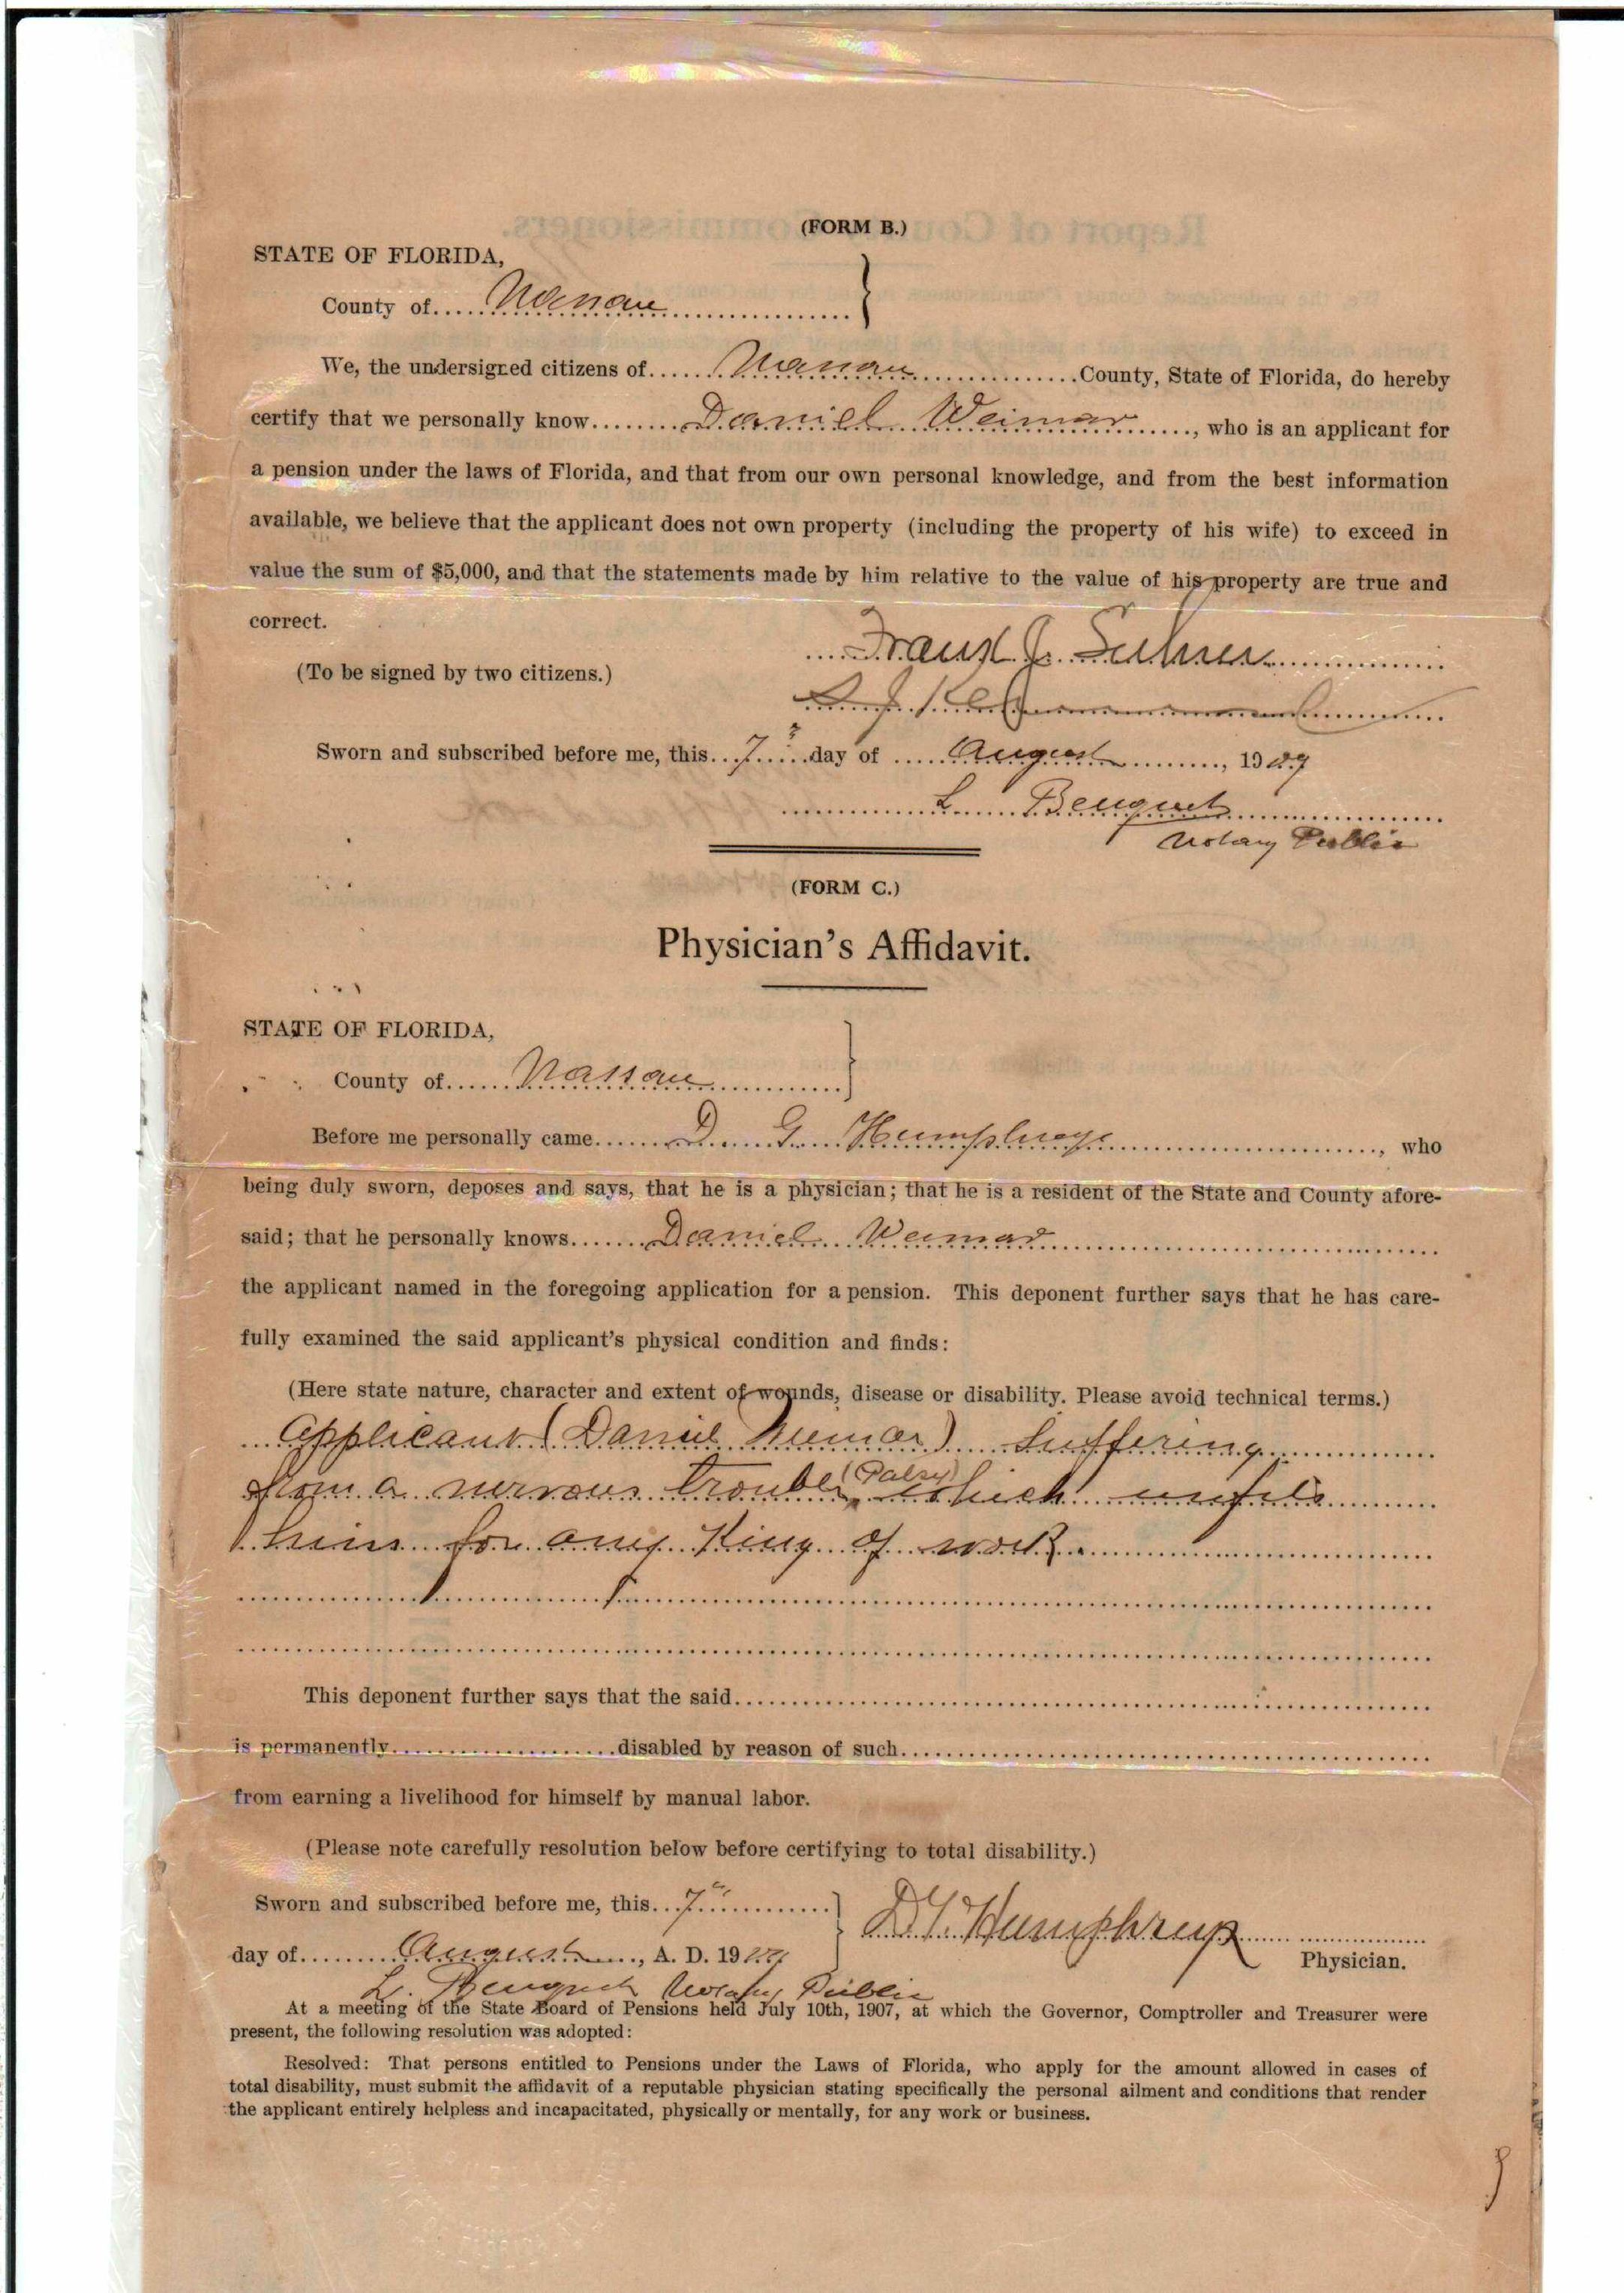 (FORM B.)
STATE OF FLORIDA,
County of Nassau
We, the undersigned citizens of Nassau County, State of Florida, do hereby
certify that we personally know Daniel Weimar, who is an applicant for
a pension under the laws of Florida, and that from our own personal knowledge, and from the best information
available, we believe that the applicant does not own property (including the property of his wife) to exceed in
value the sum of $5,000, and that the statements made by him relative to the value of his property are true and
correct.
(To be signed by two citizens.)
Sworn and subscribed before me, this 7" day of August, 1909
Notary Public
(FORM C.)
Physician's Affidavit.
STATE OF FLORIDA,
County of Nassau
Before me personally came D. G. Humphreys, who
being duly sworn, deposes and says, that he is a physician; that he is a resident of the State and County afore-
said; that he personally knows Daniel Weimar
the applicant named in the foregoing application for a pension. This deponent further says that he has care-
fully examined the said applicant's physical condition and finds:
(Here state nature, character and extent of wounds, disease or disability. Please avoid technical terms.)
Applicant (Daniel Weimar) suffering
from a nervous trouble (Palsy) which unfits
him for any King of work.
This deponent further says that the said
is permanently disabled by reason of such
from earning a livelihood for himself by manual labor.
(Please note carefully resolution below before certifying to total disability.)
Sworn and subscribed before me, this 7"
day of August, A. D. 1909
D. G. Humphreys
Physician.
Notary Public
At a meeting of the State Board of Pensions held July 10th, 1907, at which the Governor, Comptroller and Treasurer were
present, the following resolution was adopted:
Resolved: That persons entitled to Pensions under the Laws of Florida, who apply for the amount allowed in cases of
total disability, must submit the affidavit of a reputable physician stating specifically the personal ailment and conditions that render
the applicant entirely helpless and incapacitated, physically or mentally, for any work or business.